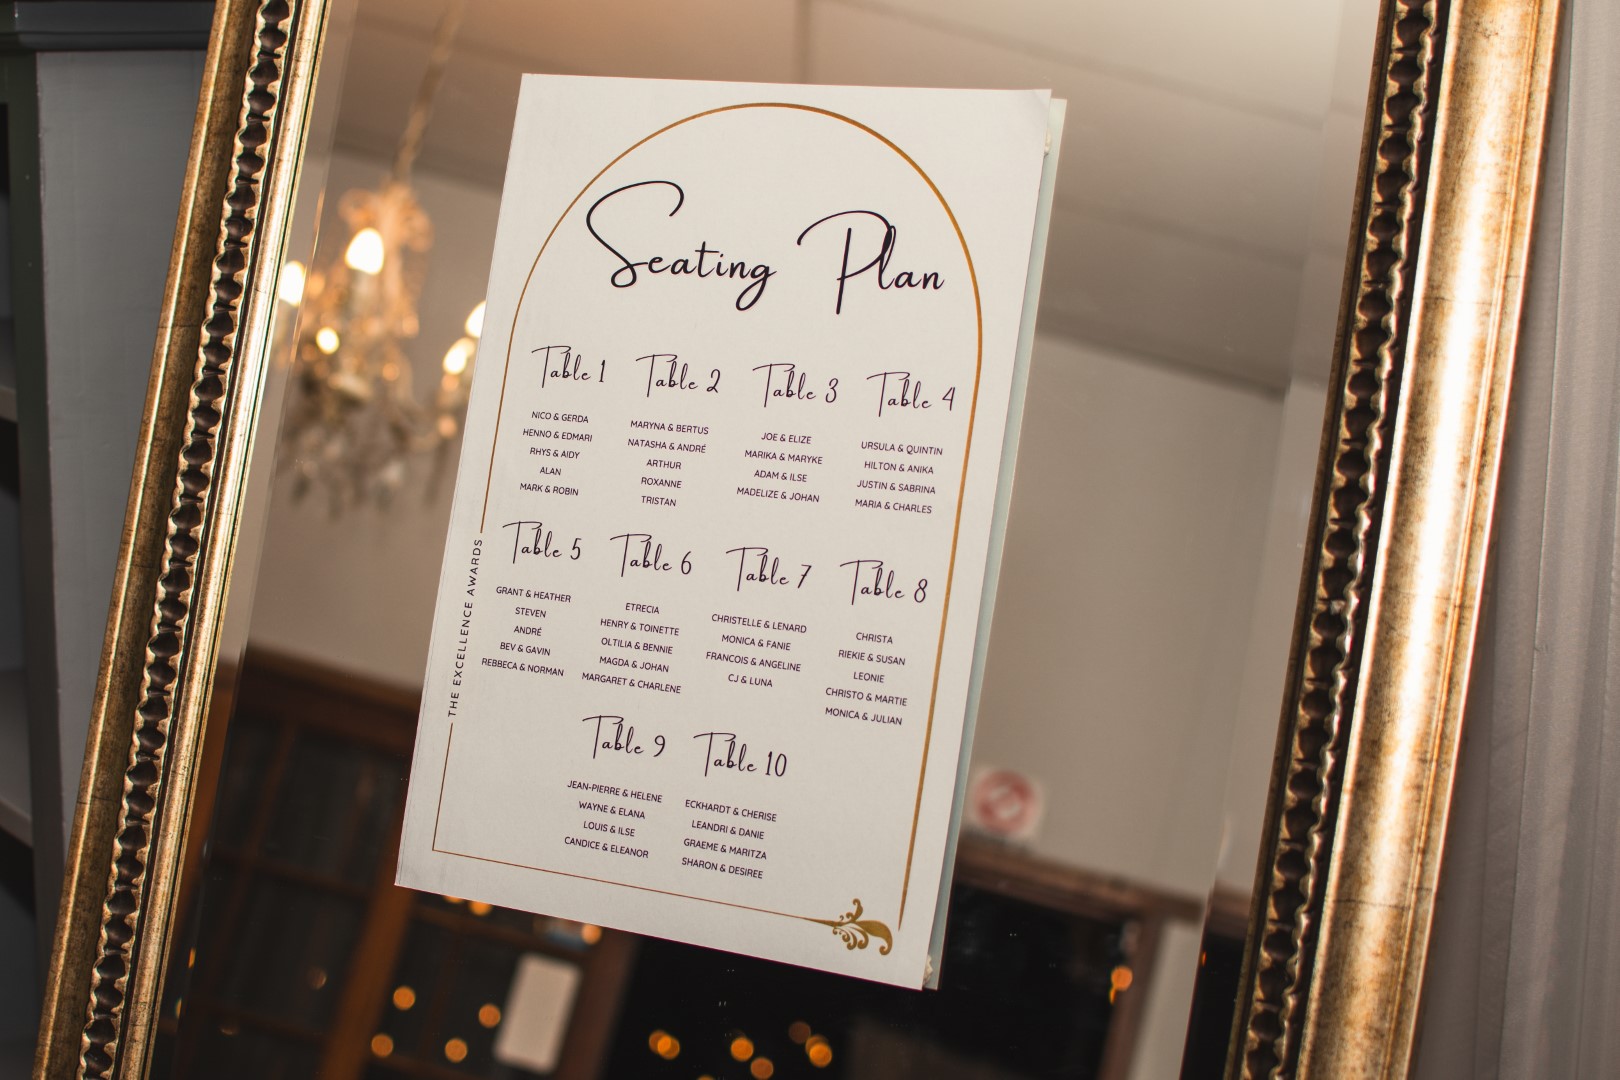 Seating Plan
Table 1
NICO & GERDA
HENNO & EDMARI
RHYS & AIDY
ALAN
MARK & ROBIN
Table 2
MARYNA & BERTUS
NATASHA & ANDRÉ
ARTHUR
ROXANNE
TRISTAN
Table 3
JOE & ELIZE
MARIKA & MARYKE
ADAM & ILSE
MADELIZE & JOHAN
Table 4
URSULA & QUINTIN
HILTON & ANIKA
JUSTIN & SABRINA
MARIA & CHARLES
THE EXCELLENCE AWARDS
Table 5
GRANT & HEATHER
STEVEN
ANDRÉ
BEV & GAVIN
REBBECA & NORMAN
Table 6
ETRECIA
HENRY & TOINETTE
OLTILIA & BENNIE
MAGDA & JOHAN
MARGARET & CHARLENE
Table 7
CHRISTELLE & LENARD
MONICA & FANIE
FRANCOIS & ANGELINE
CJ & LUNA
Table 8
CHRISTA
RIEKIE & SUSAN
LEONIE
CHRISTO & MARTIE
MONICA & JULIAN
Table 9
JEAN-PIERRE & HELENE
WAYNE & ELANA
LOUIS & ILSE
CANDICE & ELEANOR
Table 10
ECKHARDT & CHERISE
LEANDRI & DANIE
GRAEME & MARITZA
SHARON & DESIREE